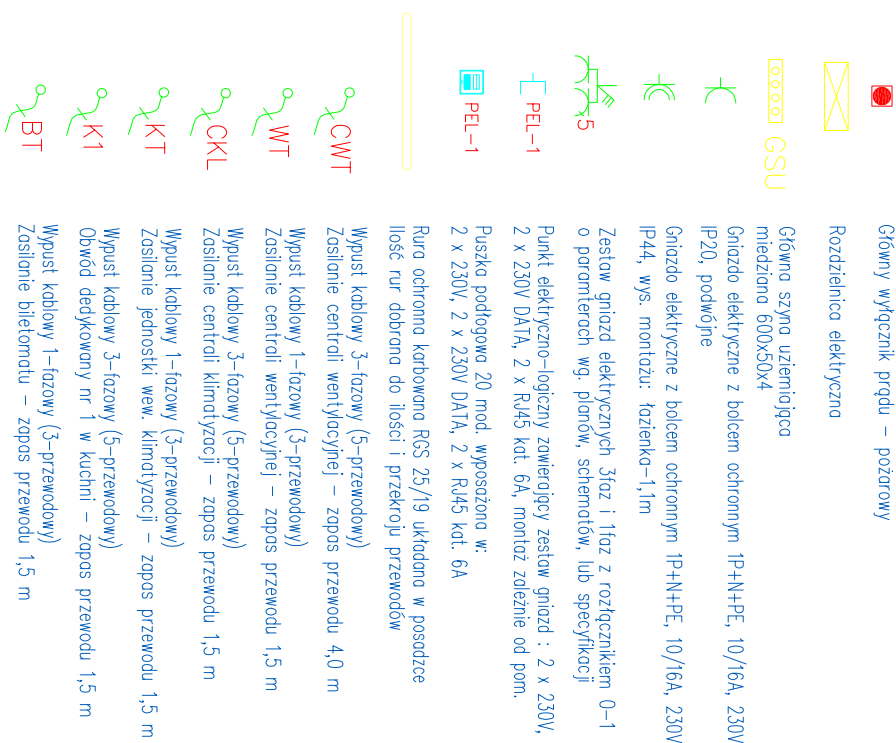 Główny wyłącznik prądu – pożarowy
Rozdzielnica elektryczna
GSU
Główna szyna uziemiająca
miedziana 600x50x4
Gniazdo elektryczne z bolcem ochronnym 1P+N+PE, 10/16A, 230V
IP20, podwójne
Gniazdo elektryczne z bolcem ochronnym 1P+N+PE, 10/16A, 230V
IP44, wys. montażu: łazienka–1,1m
5
Zestaw gniazd elektrycznych 3faz i 1faz z rozłącznikiem 0–1
o paramterach wg. planów, schematów, lub specyfikacji
PEL–1
Punkt elektryczno–logiczny zawierający zestaw gniazd : 2 x 230V,
2 x 230V DATA, 2 x RJ45 kat. 6A, montaż zależnie od pom.
PEL–1
Puszka podłogowa 20 mod. wyposażona w:
2 x 230V, 2 x 230V DATA, 2 x RJ45 kat. 6A
Rura ochronna karbowana RGS 25/19 układana w posadzce
Ilość rur dobrana do ilości i przekroju przewodów
CWT
Wypust kablowy 3–fazowy (5–przewodowy)
Zasilanie centrali wentylacyjnej – zapas przewodu 4,0 m
WT
Wypust kablowy 1–fazowy (3–przewodowy)
Zasilanie centrali wentylacyjnej – zapas przewodu 1,5 m
CKL
Wypust kablowy 3–fazowy (5–przewodowy)
Zasilanie centrali klimatyzacji – zapas przewodu 1,5 m
KT
Wypust kablowy 1–fazowy (3–przewodowy)
Zasilanie jednostki wew. klimatyzacji – zapas przewodu 1,5 m
K1
Wypust kablowy 3–fazowy (5–przewodowy)
Obwód dedykowany nr 1 w kuchni – zapas przewodu 1,5 m
BT
Wypust kablowy 1–fazowy (3–przewodowy)
Zasilanie biletomatu – zapas przewodu 1,5 m